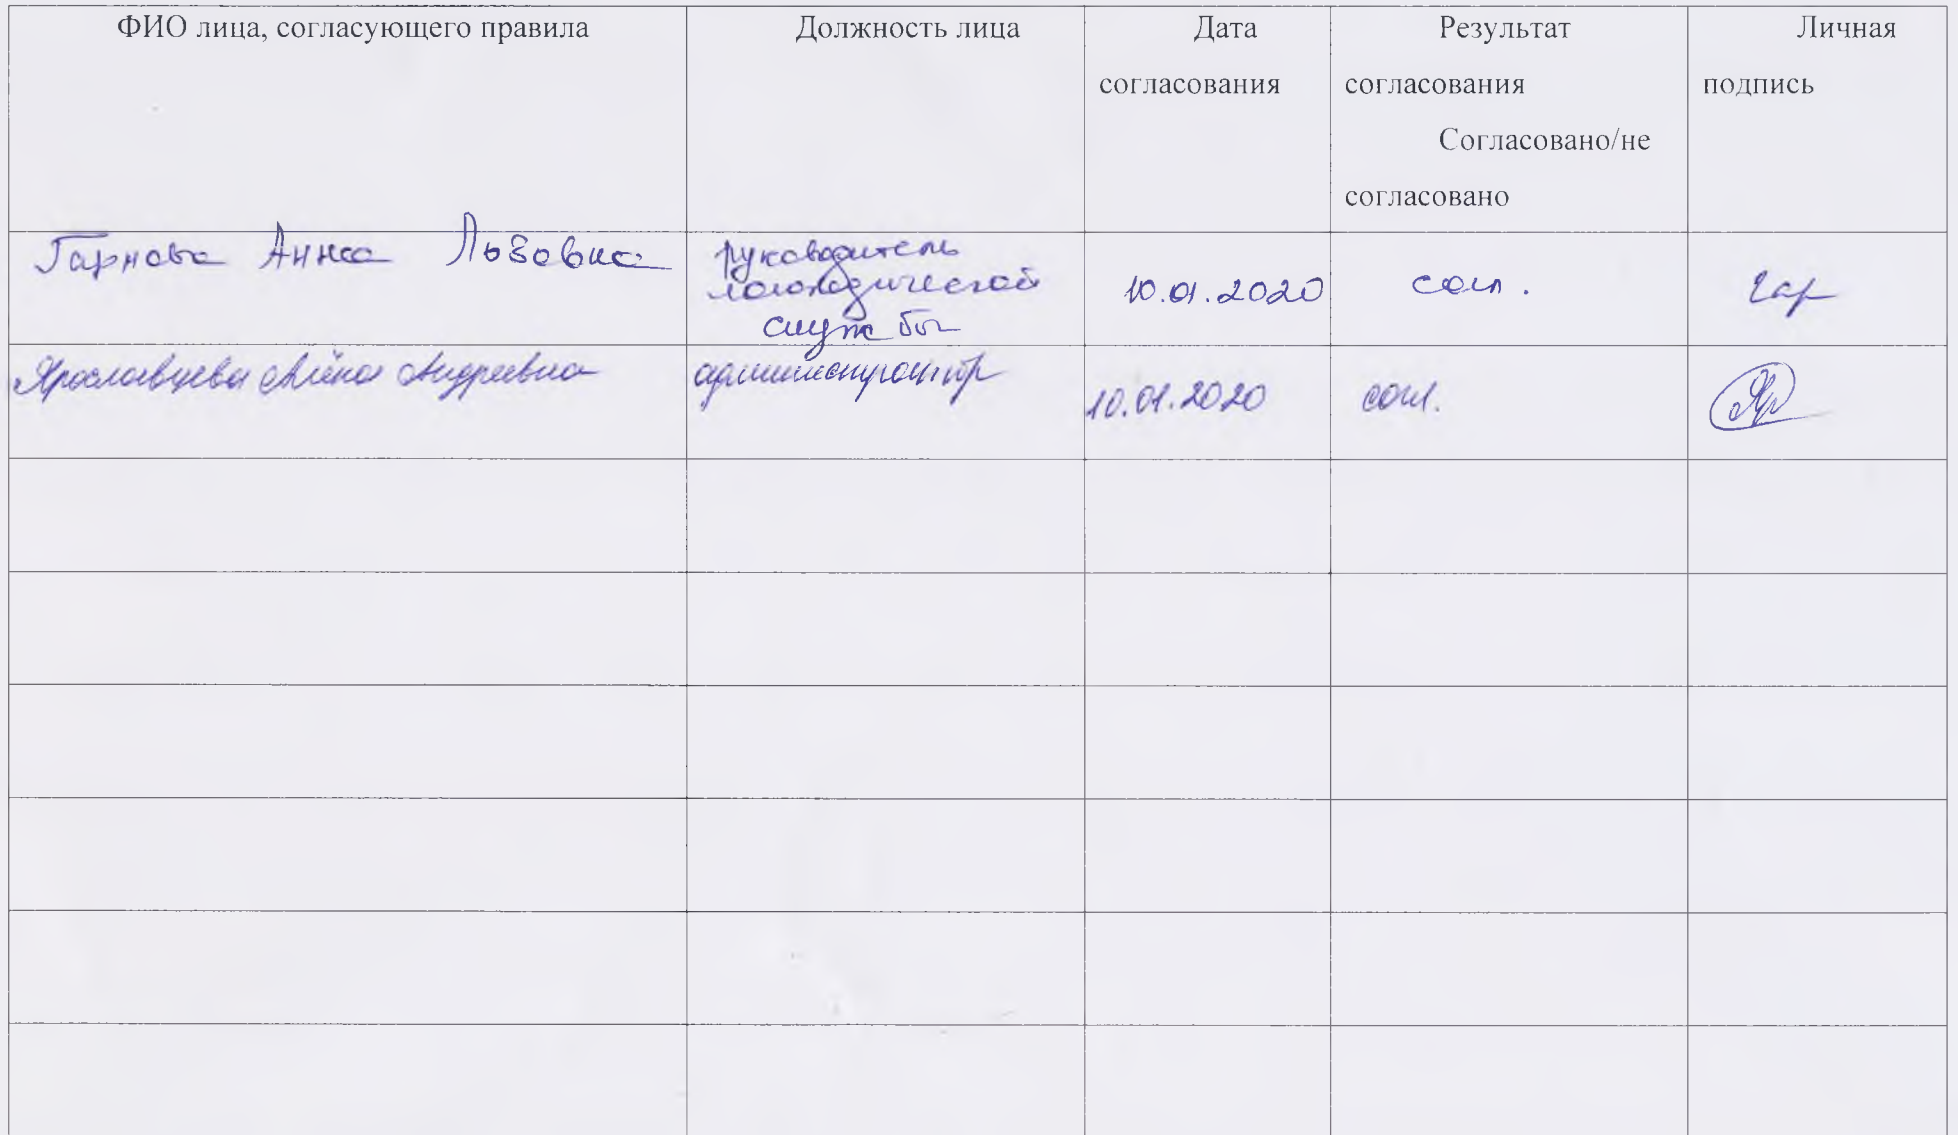 ФИО лица, согласующего правила
Должность лица
Дата
согласования
Результат
согласования
Согласовано/не
согласовано
Личная
подпись
Гарнова Анна Львовна
руководитель
логопедической
службы
10.01.2020
согл.
Гар
Ярославцева Алёна Андреевна
администратор
10.01.2020
согл.
Яр